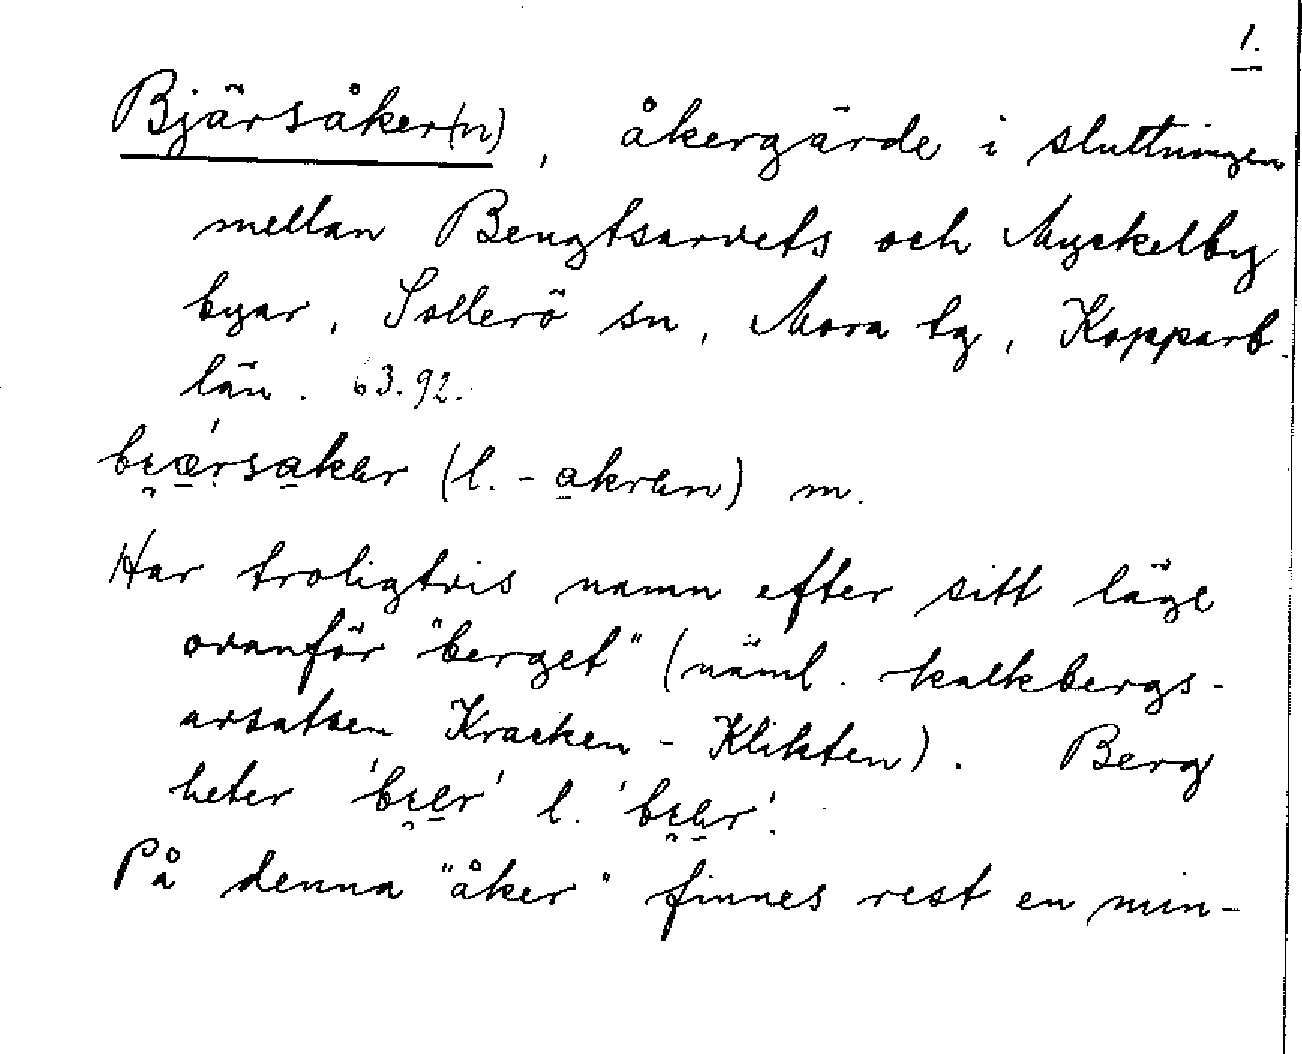 1.
Bjärsåker(n), åkergärde i sluttningen
mellan Bengtsarvets och Myckelby
byar, Sollerö sn, Mora tg, Kopparb.
län. 63.92.
bi̯æ̲̀rsa̲kər (l. -a̲krən) m.
Har troligtvis namn efter sitt läge
ovanför "berget" (näml. kalkbergs-
avsatsen Kracken - Klikten). Berg
heter 'bi̯e̲r' l. 'bi̯ə̲r'.
På denna "åker" finnes rest en min-